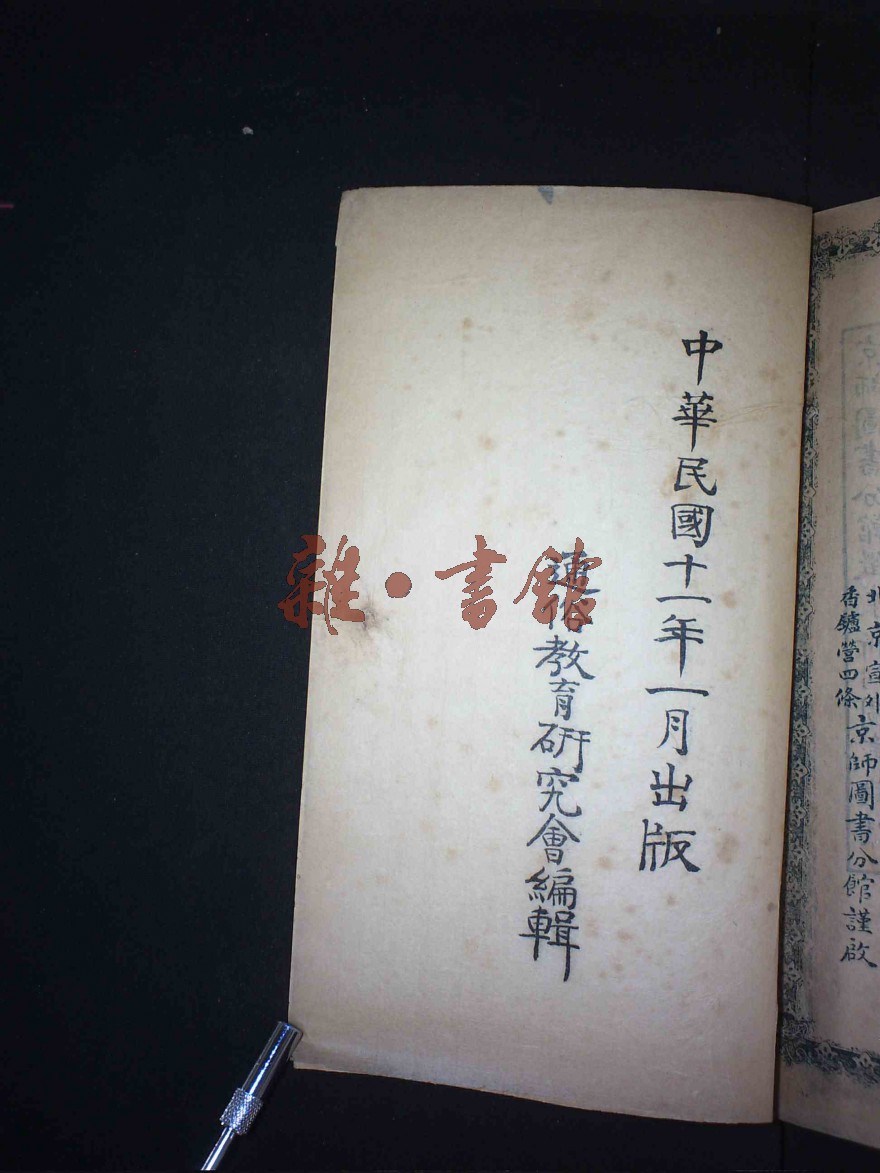 北京宣外
香鑪營四條
京師圖書分館謹啟
中華民國十一年一月出版
通俗教育研究會編輯
雜·書館